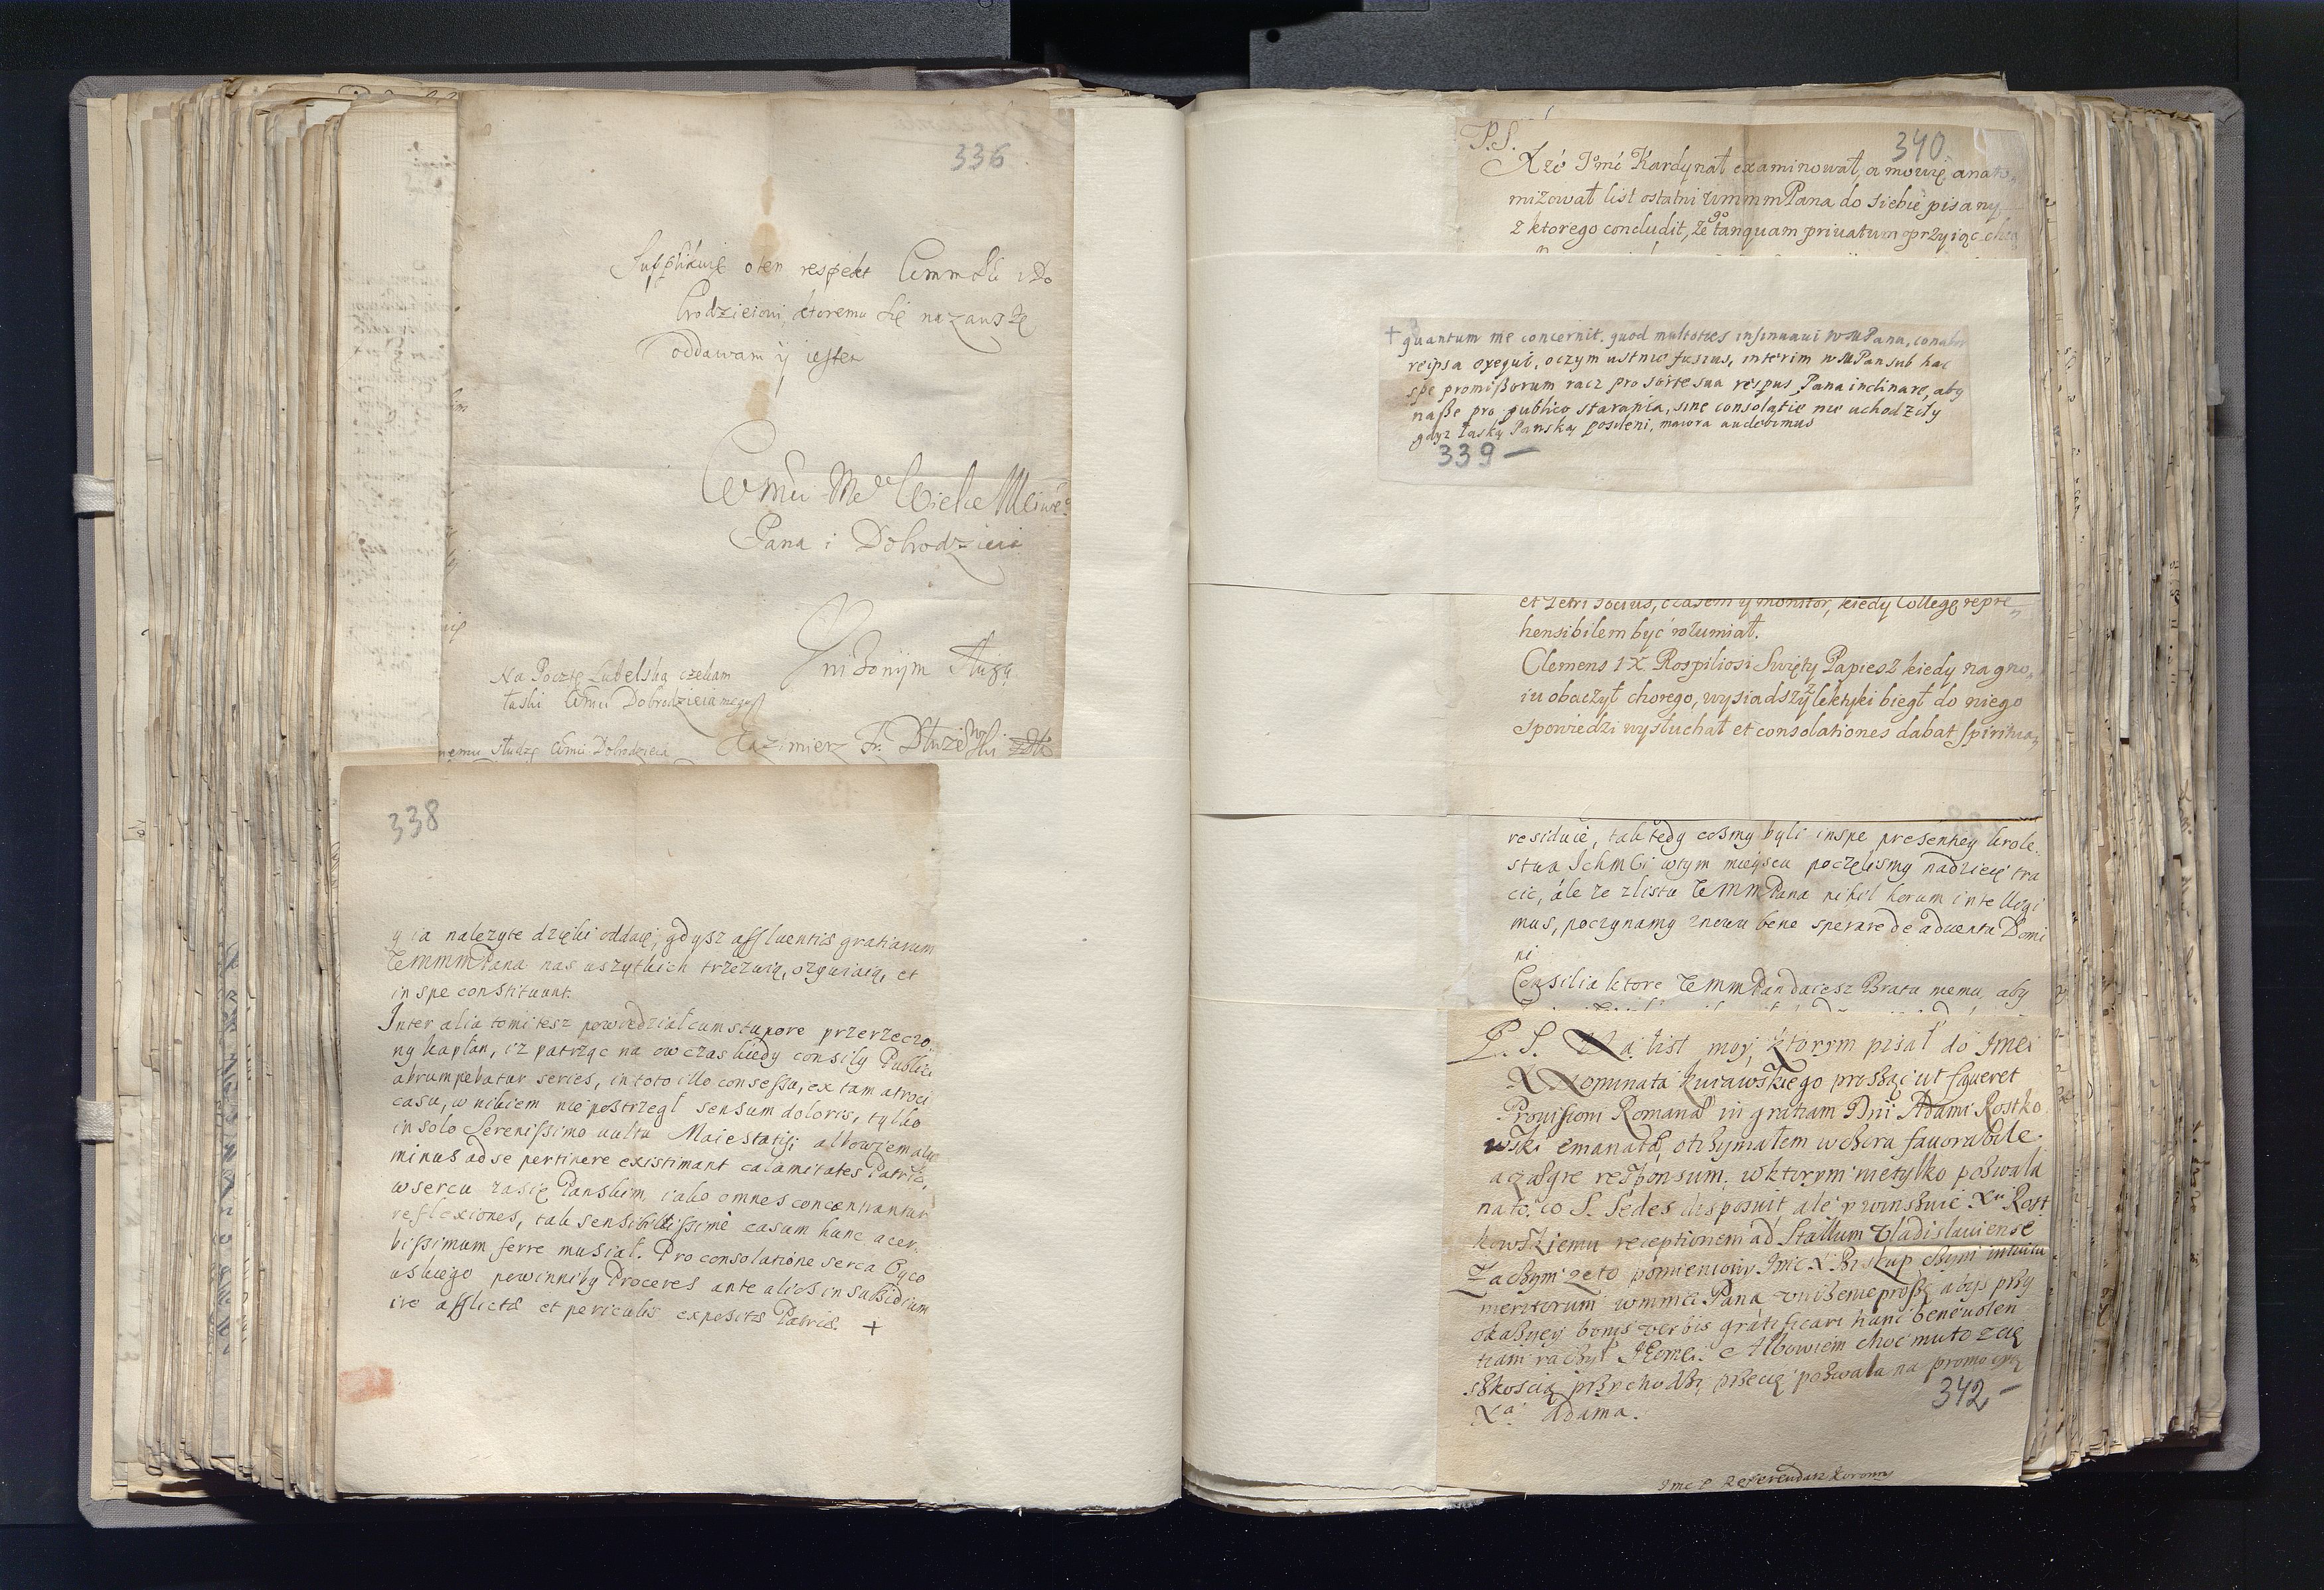 336
Suplikuię o ten respekt WmmPa i Do
brodzieiowi, ktoremu się na zawsze
oddawam y iestem
Pana i Dobrodzieia
Uniżonym sługą
Na Pocztę Lubelską czekam
łaski WMci Dobrodzieia mego
Kazimierz
nemu słudze WMci Dobrodzieia
338
y ia nalezyte dzięki oddaię, gdysz affluentis gratiarum
WMMMPana nas wszytkich trzezwią, ozywiaią, et
in spe constituunt.
Inter alia to mi tesz powiedział cum stupore przerzeczo
ny kapłan, iz patrząc na ow czas kiedy consilÿ Publici
abrumpebatur series, in toto illo consessu, ex tam atroci
casu, w nikiem nie postrzegł sensum doloris, tylko
in solo Serenissimo vultu Maiestatis; albowiem alii
minus ad se pertinere existimant calamitates Patriæ,
w sercu zasię Panskim, iako omnes concentrantur
reflexiones, tak sensibilissime casum hunc acer-
bissimum ferre musiał. Pro consolatione serca Oyco
wskiego powinniby Proceres ante alios in subsidium
ire afflictæ et periculis expositæ Patriæ. +
P.S.
340
Xże Jmć Kardynał examinował, a mowię anato-
mizował list ostatni WmmmPana do siebie pisany
z ktorego concludit, że go tanquam priuatum przyiąc chcą
+ quantum me concernit. quod multoties insinuaui WMPanu, conabor
reipsa exequi, o czym ustnie fusius, interim WMPan sub hac
spe promissorum racz pro sorte sua respus Pana inclinare, aby
nasze pro publico starania, sine consolatie nie uchodziły
gdyz łaską Panską posileni, maiora audebimus
339 —
et Petri socius, czasem y monitor, kiedy Collegę repre-
hensibilem być rozumiał.
Clemens IX Rospiliosi Swięty Papiesz kiedy na gno-
iu obaczył chorego, wysiadszy z lektyki biegł do niego
spowiedzi wysłuchał et consolationes dabat spiritua-
residuie, tak tedy cosmy byli in spe presentiey krole.
stwa Ichmći w tym mieyscu poczęlismy nadzieię tra
cic, ále ze z listu WMMPana nihil horum intelligi
mus, poczynamy znowu bene sperare de aduentu Domi
ni
Consilia ktore WMMPan daiesz Bratu memu, aby
P. S. Na list moy, ktorym pisał do Jmći
X Nominata Kuiawskiego prosząc ut faueret
Prouisioni Romanæ in gratiam Dni Adami Rostko
wski emanatæ, otrzymałem wczora fauorabile.
responsum, w ktorym nie tylko pozwala
na to, co S. Sedes disposuit, ale y winszuie Xu Rost
kowskiemu receptionem ad Stallum Vladislauiense
Za czym ze to pomieniony Jmć X Biskup czyni intuitu
meritorum wmmći Pana, uniżenie proszę abyś przy
okazyey bonis verbis gratificari hanc beneuolen
tiam raczył JEmći. Albowiem choć mu to z cię
szkoscią przychodzi, przecię pozwala na promocyą
Xa Adama.
342 —
Jmć P Referendarz Koronny